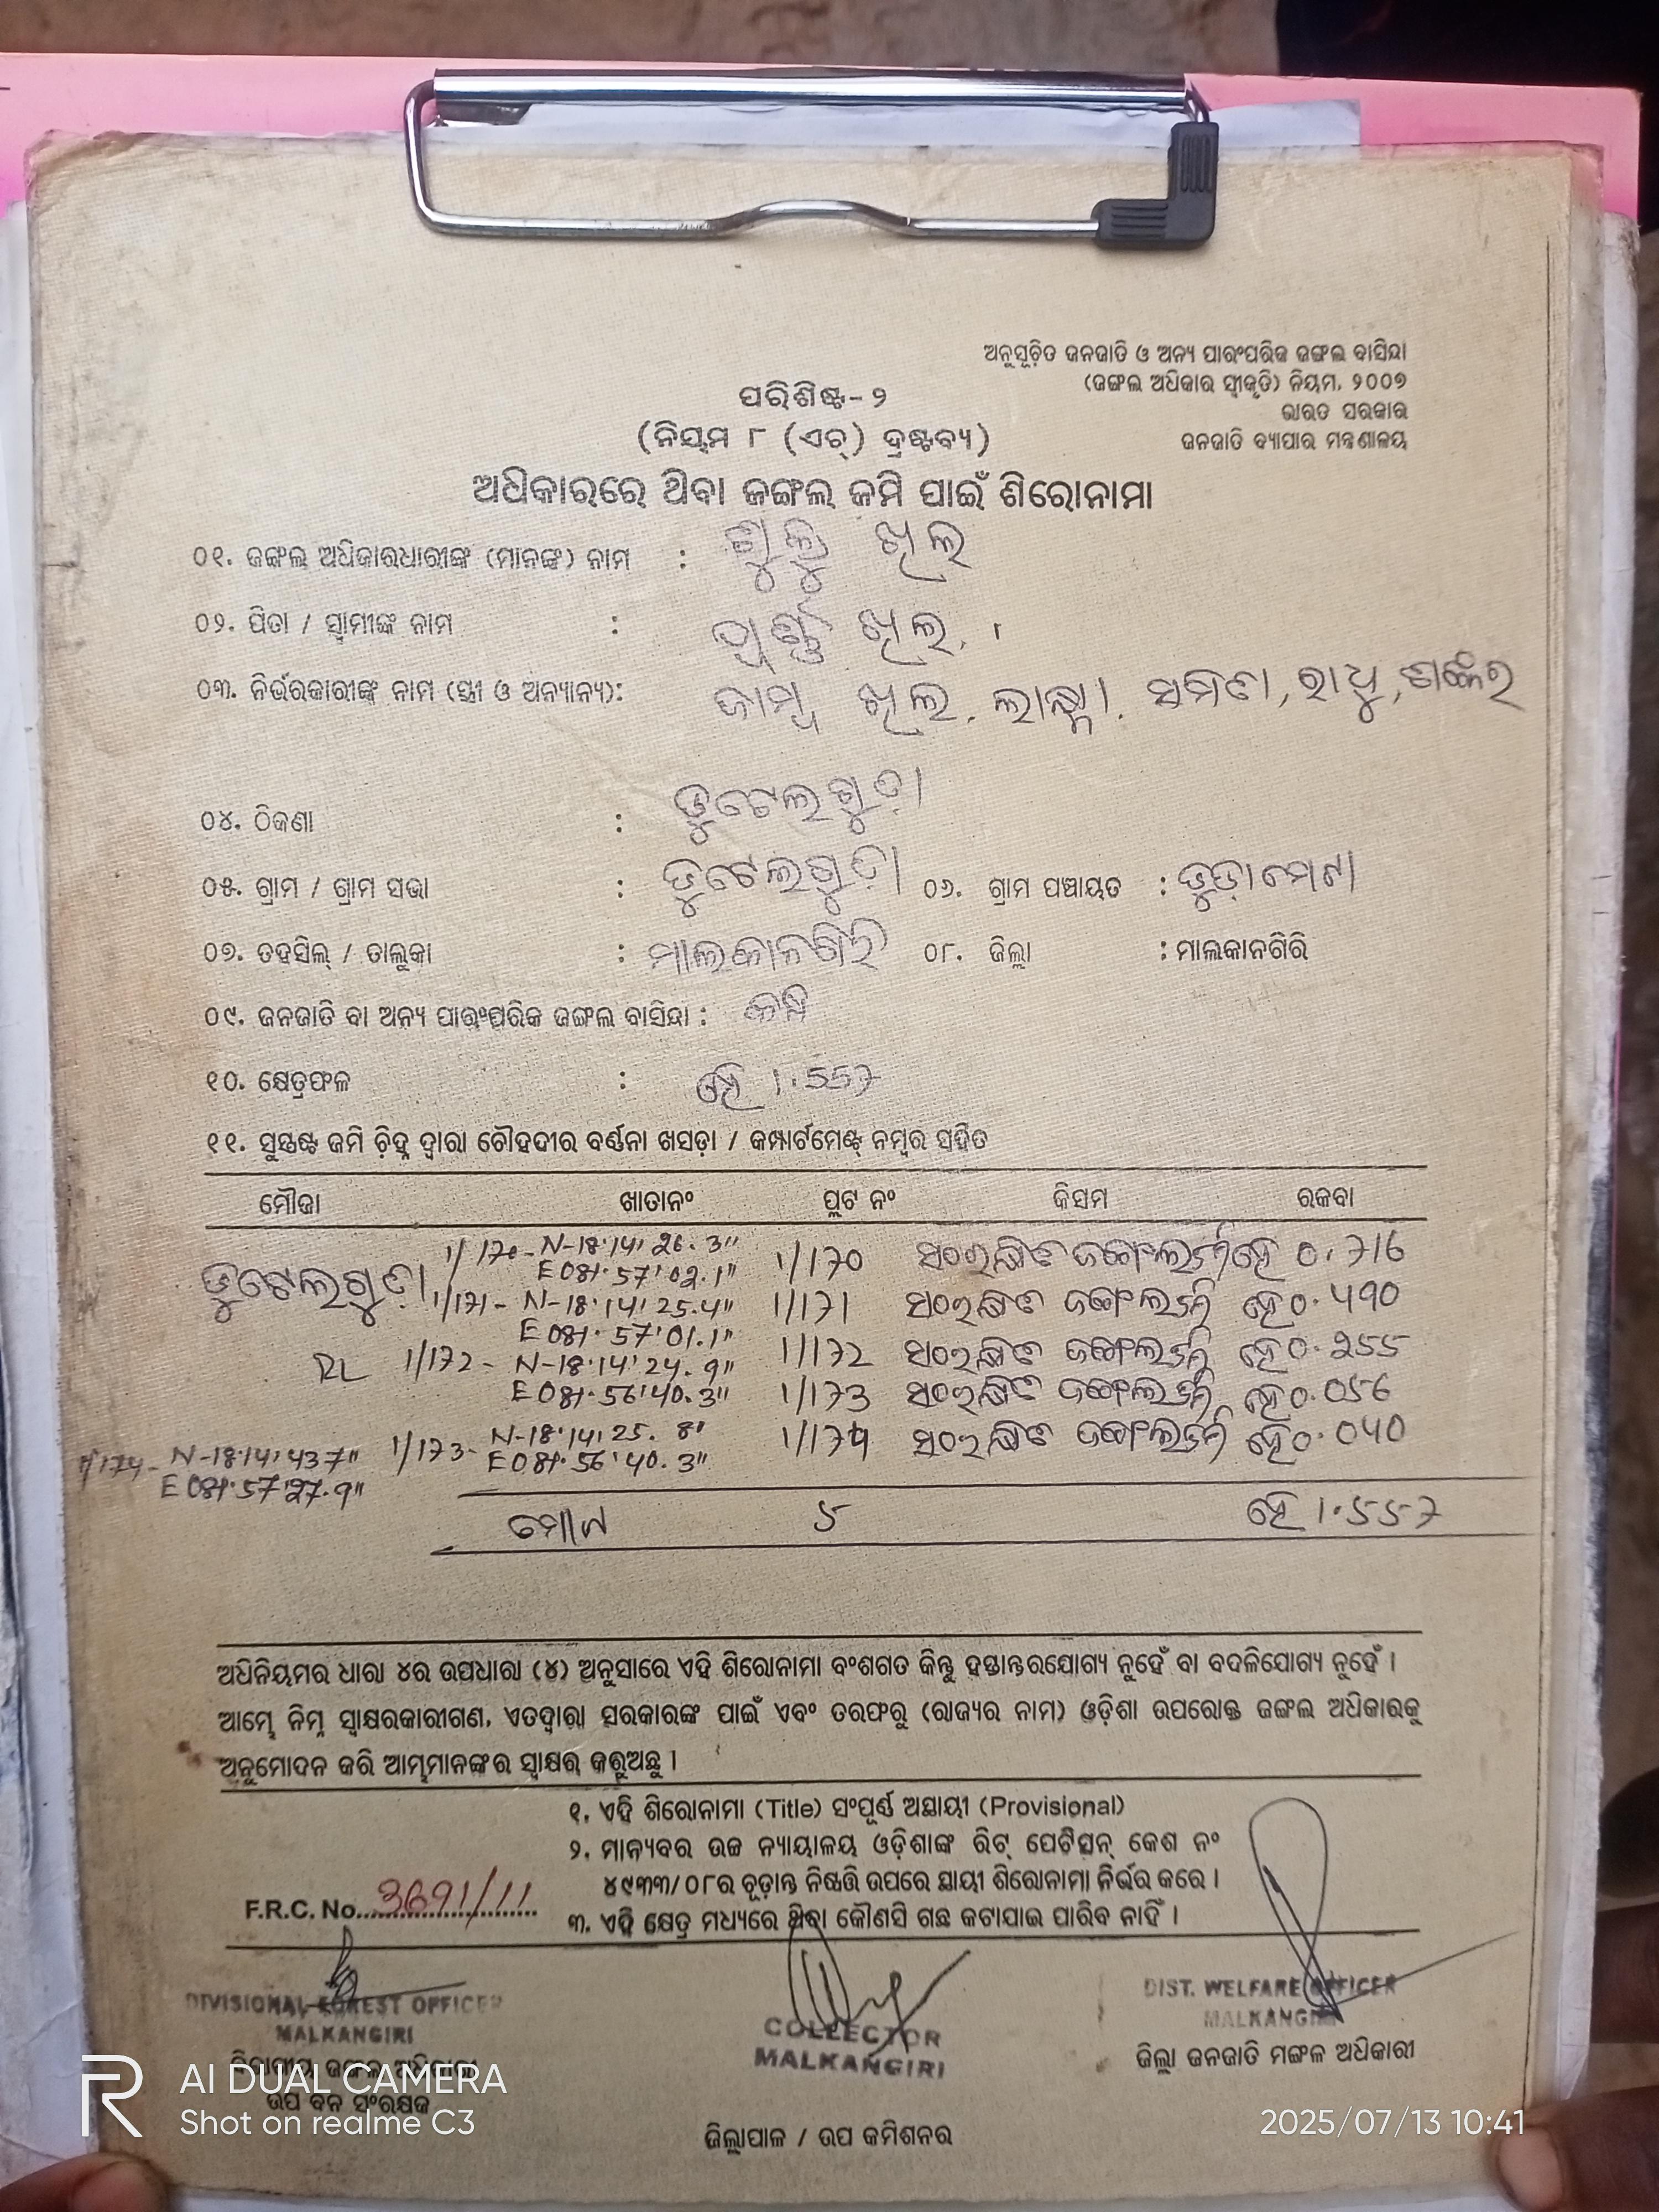 ଅନୁସୂଚିତ ଜନଜାତି ଓ ଅନ୍ୟ ପାରଂପରିକ ଜଙ୍ଗଲ ବାସିନ୍ଦା
(ଜଙ୍ଗଲ ଅଧିକାର ସ୍ୱୀକୃତି) ନିୟମ, ୨୦୦୭
ଭାରତ ସରକାର
ଜନଜାତି ବ୍ୟାପାର ମନ୍ତ୍ରଣାଳୟ
ପରିଶିଷ୍ଟ-୨
(ନିୟମ ୮ (ଏଚ୍) ଦ୍ରଷ୍ଟବ୍ୟ)
ଅଧିକାରରେ ଥିବା ଜଙ୍ଗଲ ଜମି ପାଇଁ ଶିରୋନାମା
୦୧. ଜଙ୍ଗଲ ଅଧିକାରଧାରୀଙ୍କ (ମାନଙ୍କ) ନାମ : ଖିଲ
୦୨. ପିତା / ସ୍ୱାମୀଙ୍କ ନାମ : ଖିଲ
୦୩. ନିର୍ଭରକାରୀଙ୍କ ନାମ (ସ୍ତ୍ରୀ ଓ ଅନ୍ୟାନ୍ୟ): ଖିଲ, ରାଧୁ,
୦୪. ଠିକଣା :
୦୫. ଗ୍ରାମ / ଗ୍ରାମ ସଭା : ୦୬. ଗ୍ରାମ ପଞ୍ଚାୟତ :
୦୭. ତହସିଲ୍ / ତାଲୁକା : ମାଲକାନଗିରି ୦୮. ଜିଲ୍ଲା : ମାଲକାନଗିରି
୦୯. ଜନଜାତି ବା ଅନ୍ୟ ପାରଂପରିକ ଜଙ୍ଗଲ ବାସିନ୍ଦା :
୧୦. କ୍ଷେତ୍ରଫଳ : ହେ 1.557
୧୧. ସୁସ୍ପଷ୍ଟ ଜମି ଚିହ୍ନ ଦ୍ୱାରା ଚୌହଦୀର ବର୍ଣ୍ଣନା ଖସଡ଼ା / କମ୍ପାର୍ଟମେଣ୍ଟ୍ ନମ୍ବର ସହିତ
ମୌଜା ଖାତାନଂ ପ୍ଲଟ ନଂ କିସମ ରକବା
1/170- N-18°14' 26.3" 1/170 ହେ 0.716
E 081°57'02.1"
1/171- N-18°14'25.4" 1/171 ହେ 0.490
E 081°57'01.1"
RL 1/172- N-18°14'24.9" 1/172 ହେ 0.255
E 081°56'40.3" 1/173 ହେ 0.056
1/173- N-18°14'25.8" 1/174 ହେ 0.040
E 081°56'40.3"
1/174- N-18°14'43.7"
E 081°57'27.9"
ମୋଟ 5 ହେ 1.557
ଅଧିନିୟମର ଧାରା ୪ର ଉପଧାରା (୪) ଅନୁସାରେ ଏହି ଶିରୋନାମା ବଂଶଗତ କିନ୍ତୁ ହସ୍ତାନ୍ତରଯୋଗ୍ୟ ନୁହେଁ ବା ବଦଳିଯୋଗ୍ୟ ନୁହେଁ ।
ଆମ୍ଭେ ନିମ୍ନ ସ୍ୱାକ୍ଷରକାରୀଗଣ, ଏତଦ୍ୱାରା ସରକାରଙ୍କ ପାଇଁ ଏବଂ ତରଫରୁ (ରାଜ୍ୟର ନାମ) ଓଡ଼ିଶା ଉପରୋକ୍ତ ଜଙ୍ଗଲ ଅଧିକାରକୁ
ଅନୁମୋଦନ କରି ଆମ୍ଭମାନଙ୍କର ସ୍ୱାକ୍ଷର କରୁଅଛୁ ।
୧. ଏହି ଶିରୋନାମା (Title) ସଂପୂର୍ଣ୍ଣ ଅସ୍ଥାୟୀ (Provisional)
୨. ମାନ୍ୟବର ଉଚ୍ଚ ନ୍ୟାୟାଳୟ ଓଡ଼ିଶାଙ୍କ ରିଟ୍ ପେଟିସନ୍ କେଶ ନଂ
୪୯୩୩/୦୮ର ଚୂଡ଼ାନ୍ତ ନିଷ୍ପତ୍ତି ଉପରେ ସ୍ଥାୟୀ ଶିରୋନାମା ନିର୍ଭର କରେ ।
F.R.C. No. 3691/11
୩. ଏହି କ୍ଷେତ୍ର ମଧ୍ୟରେ ଥିବା କୌଣସି ଗଛ କଟାଯାଇ ପାରିବ ନାହିଁ ।
DIVISIONAL FOREST OFFICER
MALKANGIRI
ବିଭାଗୀୟ ଜଙ୍ଗଲ ଅଧିକାରୀ
ଉପ ବନ ସଂରକ୍ଷକ
COLLECTOR
MALKANGIRI
ଜିଲ୍ଲାପାଳ / ଉପ କମିଶନର
DIST. WELFARE OFFICER
MALKANGIRI
ଜିଲ୍ଲା ଜନଜାତି ମଙ୍ଗଳ ଅଧିକାରୀ
AI DUAL CAMERA
Shot on realme C3
2025/07/13 10:41